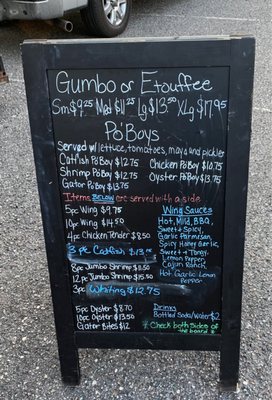 Gumbo or Etouffee
Sm $9.25 Med $11.25 Lg $13.50 XLg $17.95
Po'Boys
Served w/ lettuce, tomatoes, mayo and pickles
Catfish Po'Boy $12.75 Chicken Po'Boy $10.75
Shrimp Po'Boy $12.75 Oyster Po'Boy $13.75
Gator Po'Boy $13.75
Items BELOW are served with a side
5pc Wing $9.75
10pc Wing $14.50
4pc Chicken Tender $8.50
3 pc Catfish
8pc Jumbo Shrimp $8.50
12pc Jumbo Shrimp
3pc Whiting $12.75
5pc Oyster $8.70
10pc Oyster $13.50
Gator Bites $12
Wing Sauces
Hot, Mild, BBQ
Sweet & Spicy,
Garlic Parmesan,
Spicy Honey Garlic,
Sweet & Tangy,
Lemon Pepper,
Cajun Ranch
Hot Garlic Lemon
Pepper
Drinks
Bottled Soda/water $2
* Check both sides of
the board *